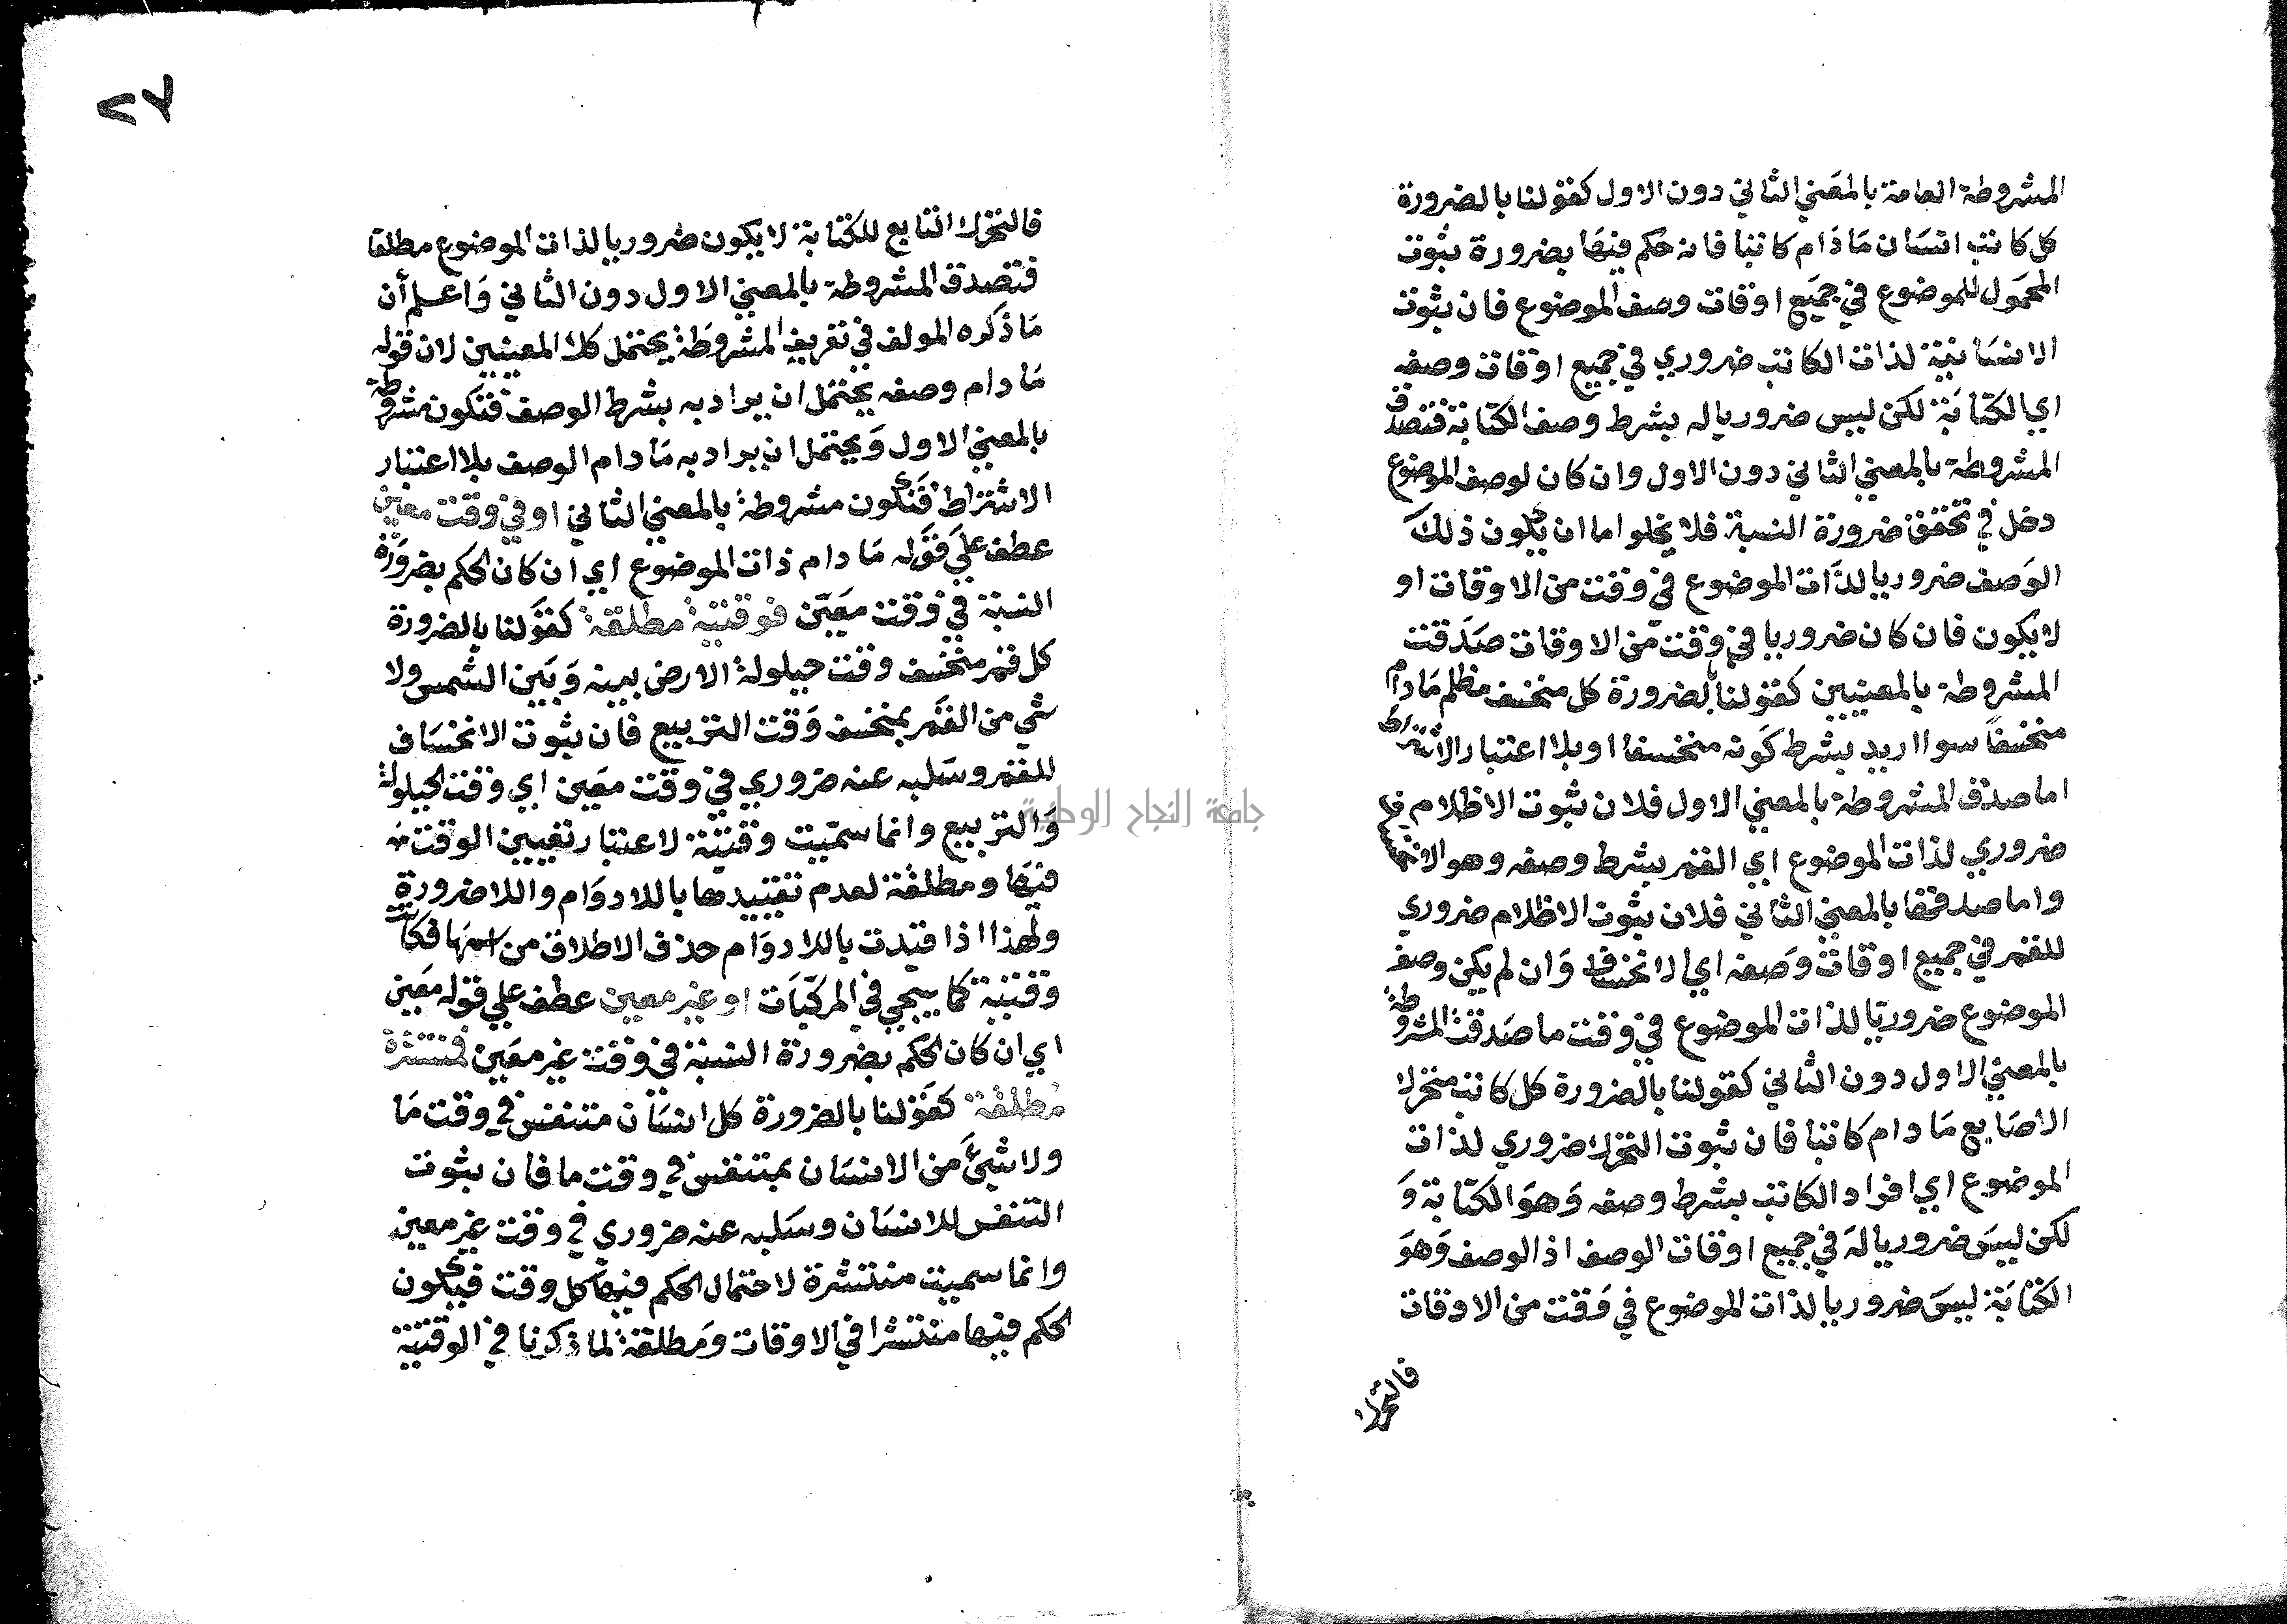 المشروطة العامة بالمعني الثاني دون الاول كقولنا بالضرورة
كل كاتب انسان مادام كاتبا فانه حكم فيها بضرورة ثبوت
المحمول للموضوع في جميع اوقات وصف الموضوع فان ثبوت
الانسانية لذات الكاتب ضروري في جميع اوقات وصفه
اي الكتابة لكن ليس ضروريا له بشرط وصف الكتابة فتصدق
المشروطة بالمعني الثاني دون الاول وان كان لوصف الموضوع
دخل في تحقق ضرورة النسبة فلا يخلوا اما ان يكون ذلك
الوصف ضروريا لذات الموضوع في وقت من الاوقات او
لا يكون فان كان ضروريا في وقت من الاوقات صدقت
المشروطة بالمعنيين كقولنا بالضرورة كل منخسف مظلم مادام
منخسفاً سوا اريد بشرط كونه منخسفا او بلا اعتبار الاشتراط
اما صدق المشروطة بالمعني الاول فلان ثبوت الاظلام
ضروري لذات الموضوع اي القمر بشرط وصفه وهو الانخساف
واما صدقها بالمعني الثاني فلان ثبوت الاظلام ضروري
للقمر في جميع اوقات وصفه اي الانخساف وان لم يكن وصف
الموضوع ضروريا لذات الموضوع في وقت ما صدقت المشروطة
بالمعني الاول دون الثاني كقولنا بالضرورة كل كاتب متحرك
الاصابع مادام كاتبا فان ثبوت التحرك ضروري لذات
الموضوع اي افراد الكاتب بشرط وصفه وهو الكتابة و
لكن ليس ضروريا له في جميع اوقات الوصف اذ الوصف وهو
الكتابة ليس ضروريا لذات الموضوع في وقت من الاوقات
فالتحرك
٢٧
فالتحرك التابع للكتابة لا يكون ضروريا لذات الموضوع مطلقا
فتصدق المشروطة بالمعني الاول دون الثاني واعلم أن
ما ذكره المولف في تعريف المشروطة يحتمل كلا المعنيين لان قوله
مادام وصفه يحتمل ان يراد به بشرط الوصف فتكون مشروطة
بالمعني الاول ويحتمل ان يراد به مادام الوصف بلا اعتبار
الاشتراط فتكون مشروطة بالمعني الثاني او في وقت معين
عطف علي قوله مادام ذات الموضوع اي ان كان الحكم بضرورة
النسبة في وقت معين فوقتية مطلقة كقولنا بالضرورة
كل قمر منخسف وقت حيلولة الارض بينه وبين الشمس ولا
شي من القمر بمنخسف وقت التربيع فان ثبوت الانخساف
للقمر وسلبه عنه ضروري في وقت معين اي وقت الحيلولة
والتربيع وانما سميت وقتية لاعتبار تعيين الوقت
فيها ومطلقة لعدم تقييدها باللادوام واللاضرورة
ولهذا اذا قيدت باللادوام حذف الاطلاق من اسمها فكانت
وقتية كما يجي في المركبات او غير معين عطف علي قوله معين
اي ان كان الحكم بضرورة النسبة في وقت غير معين فمنتشرة
مطلقة كقولنا بالضرورة كل انسان متنفس في وقت ما
ولا شيء من الانسان بمتنفس في وقت ما فان ثبوت
التنفس للانسان وسلبه عنه ضروري في وقت غير معين
وانما سميت منتشرة لاحتمال الحكم فيها كل وقت فيكون
الحكم فيها منتشرا في الاوقات ومطلقة لما ذكرنا في الوقتية
جامعة النجاح الوطنية